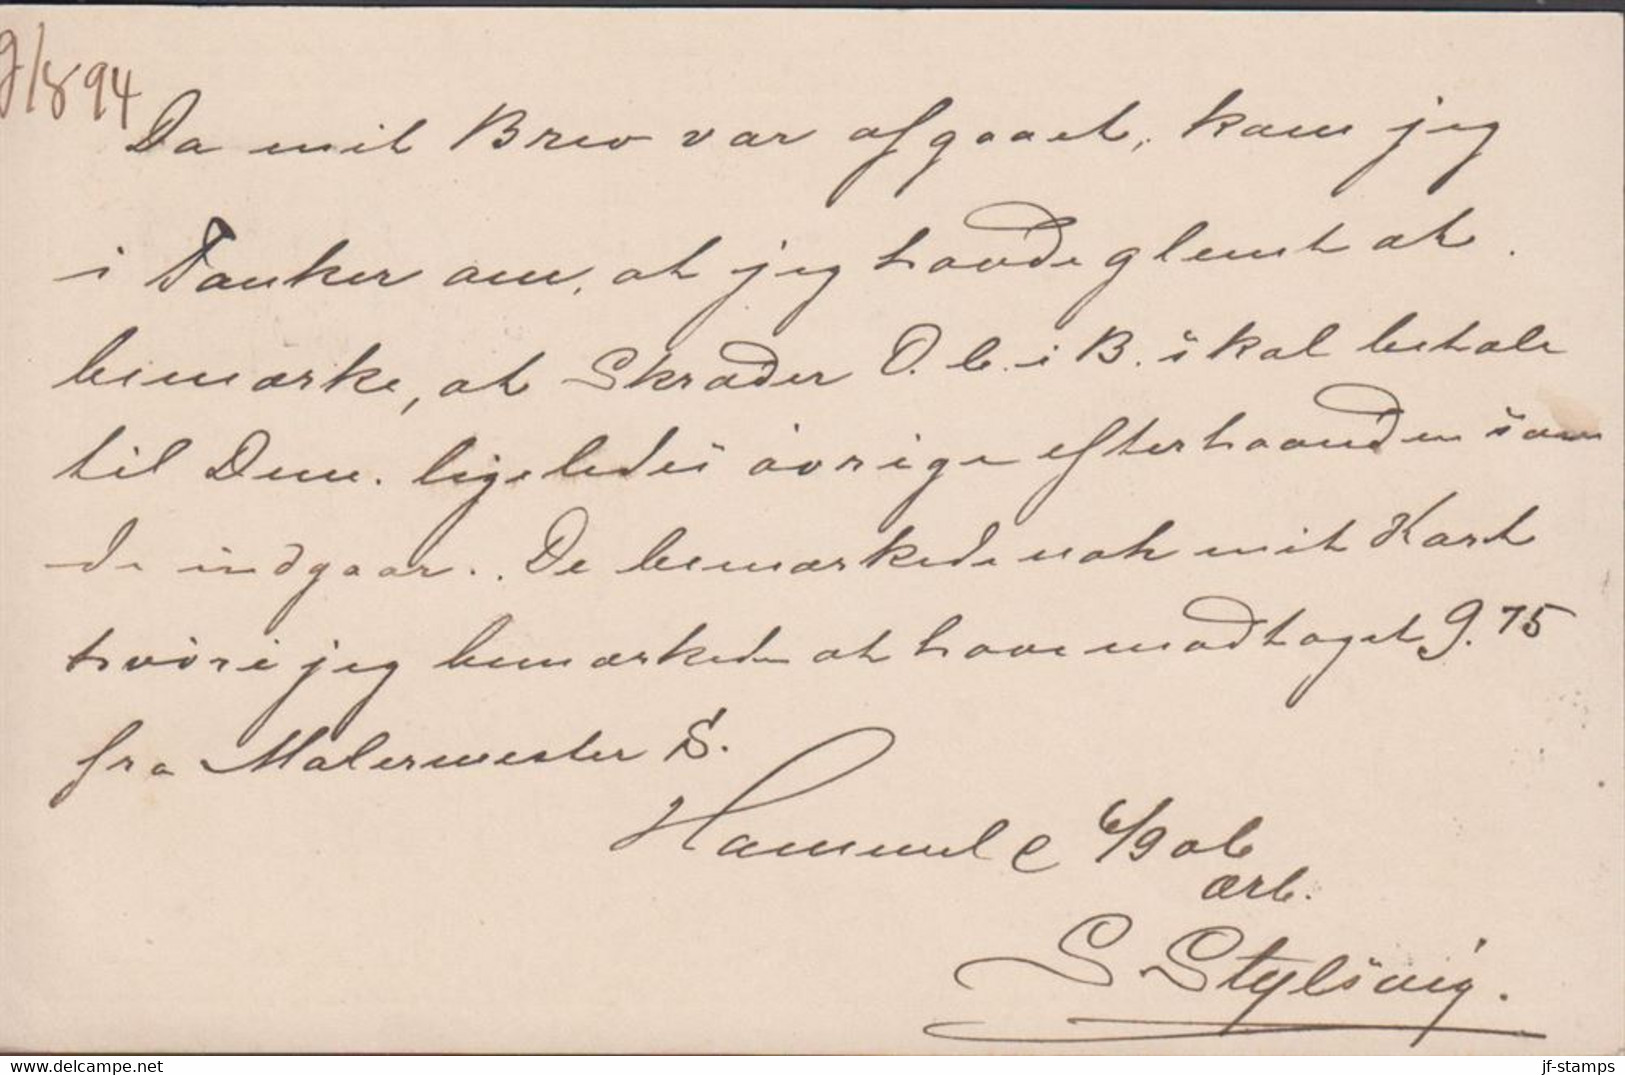 9/8 94
Da mit Brev var afgaaet, kom jeg
i Tanker om, at jeg havde glemt at
bemærke, at Skræder O. C. i B. skal betale
til Dem. ligeledes øvrige efterhaanden som
de indgaar.. De bemærkede nok mit Kort
hvori jeg bemærkede at have modtaget 9.75
fra Malermester S.
Hammel
ærb.
S Stylsvig.
jf-stamps